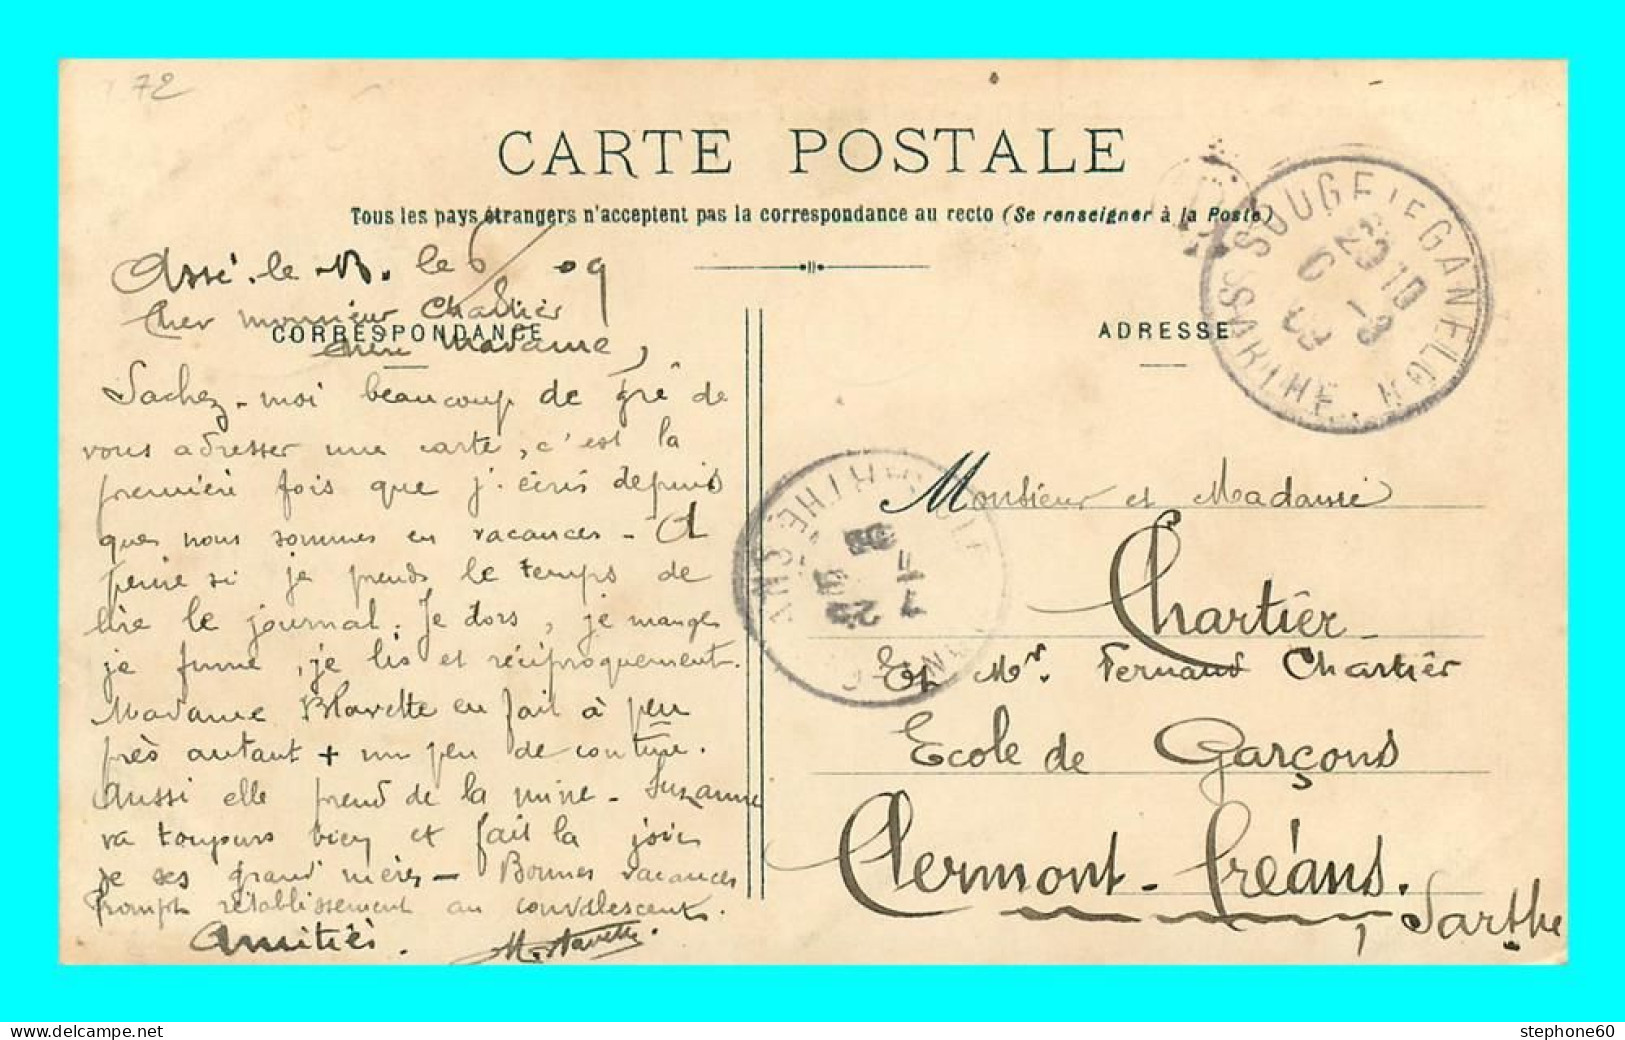 72
CARTE POSTALE
Tous les pays étrangers n'acceptent pas la correspondance au recto (Se renseigner à la Poste)
SOUGE-LE-GANELON
SARTHE
Assé-le-B. le 6 09
Cher monsieur Chartier
CORRESPONDANCE
chère Madame,
ADRESSE
Sachez-moi beaucoup de gré de
vous adresser une carte, c'est la
première fois que j'écris depuis
que nous sommes en vacances - A
peine si je prends le temps de
lire le journal. Je dors, je mange
je fume, je lis et réciproquement.
Madame Blavette en fait à peu
près autant + un peu de couture.
Aussi elle prend de la mine - Suzanne
va toujours bien et fait la joie
de ses grand'mères - Bonnes vacances
Prompt rétablissement au convalescent.
Amitiés.
Monsieur et Madame
Chartier
Et Mr. Fernand Chartier
Ecole de Garçons
Clermont-Créans.
Sarthe
www.delcampe.net
stephone60